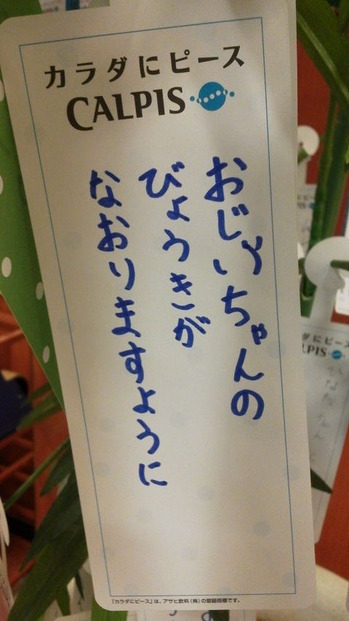 カラダにピース
CALPIS
おじいちゃんの
びょうきが
なおりますように
「カラダにピース」は、アサヒ飲料(株)の登録商標です。
カラダにピース
CALPIS